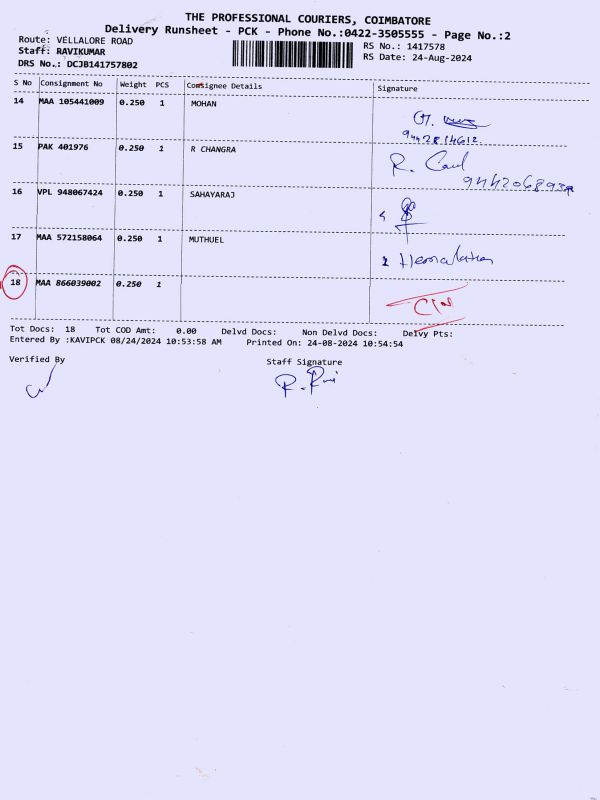 THE PROFESSIONAL COURIERS, COIMBATORE
Delivery Runsheet - PCK - Phone No.:0422-3505555 - Page No.:2
Route: VELLALORE ROAD
RS No.: 1417578
Staff: RAVIKUMAR
RS Date: 24-Aug-2024
DRS No.: DCJB141757802
S No Consignment No Weight PCS Consignee Details Signature
14 MAA 105441009 0.250 1 MOHAN
15 PAK 401976 0.250 1 R CHANGRA
R.
16 VPL 948067424 0.250 1 SAHAYARAJ
17 MAA 572158064 0.250 1 MUTHUEL
18 MAA 866039002 0.250 1
Tot Docs: 18 Tot COD Amt: 0.00 Delvd Docs: Non Delvd Docs: Delvy Pts:
Entered By :KAVIPCK 08/24/2024 10:53:58 AM Printed On: 24-08-2024 10:54:54
Verified By Staff Signature